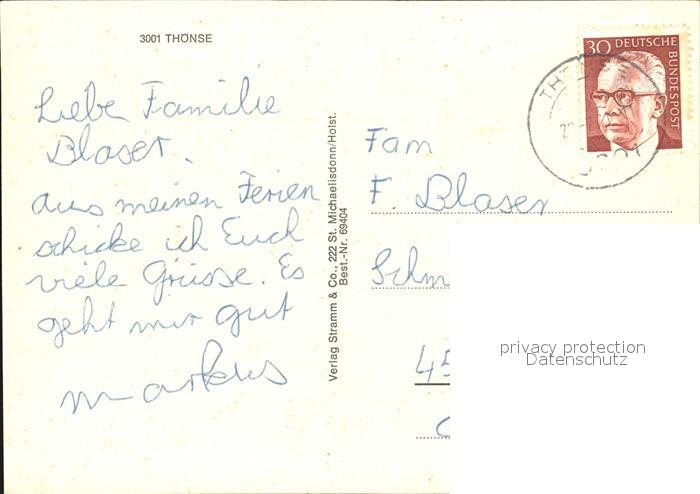 3001 THÖNSE
Liebe Familie
Blaser.
aus meinen Ferien
schicke ich Euch
viele Grüsse. Es
geht mir gut
Markus
Verlag Stramm & Co., 222 St. Michaelisdonn/Holst.
Best.-Nr. 69404
30 DEUTSCHE
BUNDESPOST
Fam
F. Blaser
Schm
45
privacy protection
Datenschutz